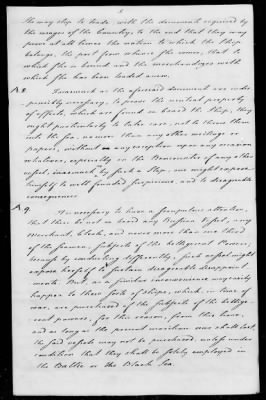 No ship is to trade with the document required by
the usages of the Country, to the end that they may
prove at all times the nation to which the Ship
belongs, the port from whence she comes, that to
which she is bound and the merchandizes with
which she has been loaded
Art. 8. Inasmuch as the aforesaid document are indis-
pensibly necessary, to prove the neutral property
of effects, which are found on board the Ship, they
ought particularly to take care, not to throw them
into the sea, no more than any other writings or
papers, without any exception upon any occasion
whatever, especially on the Rencounter of any other
vessel, inasmuch by such a Step, one might expose
himself to well founded suspicions, and to disagreeable
consequences.
Art. 9. It is necessary to have a scrupulous attention,
that there be not on board any Russian Vessel, any
Merchant, Clerk, and never more than one third
of the sailors, subjects of the belligerent Powers,
because by conducting differently, such vessel might
expose herself to certain disagreeable disappoint
ments. But, as a similar inconvenience may easily
happen to these sorts of ships, which, in time of
war, are purchased of the subjects of the bellige-
rent powers, for this reason, from this hour,
and as long as the present maritime war shall last,
the said vessels may not be purchased, unless under
condition that they shall be solely employed in
the Baltic or the Black Sea.